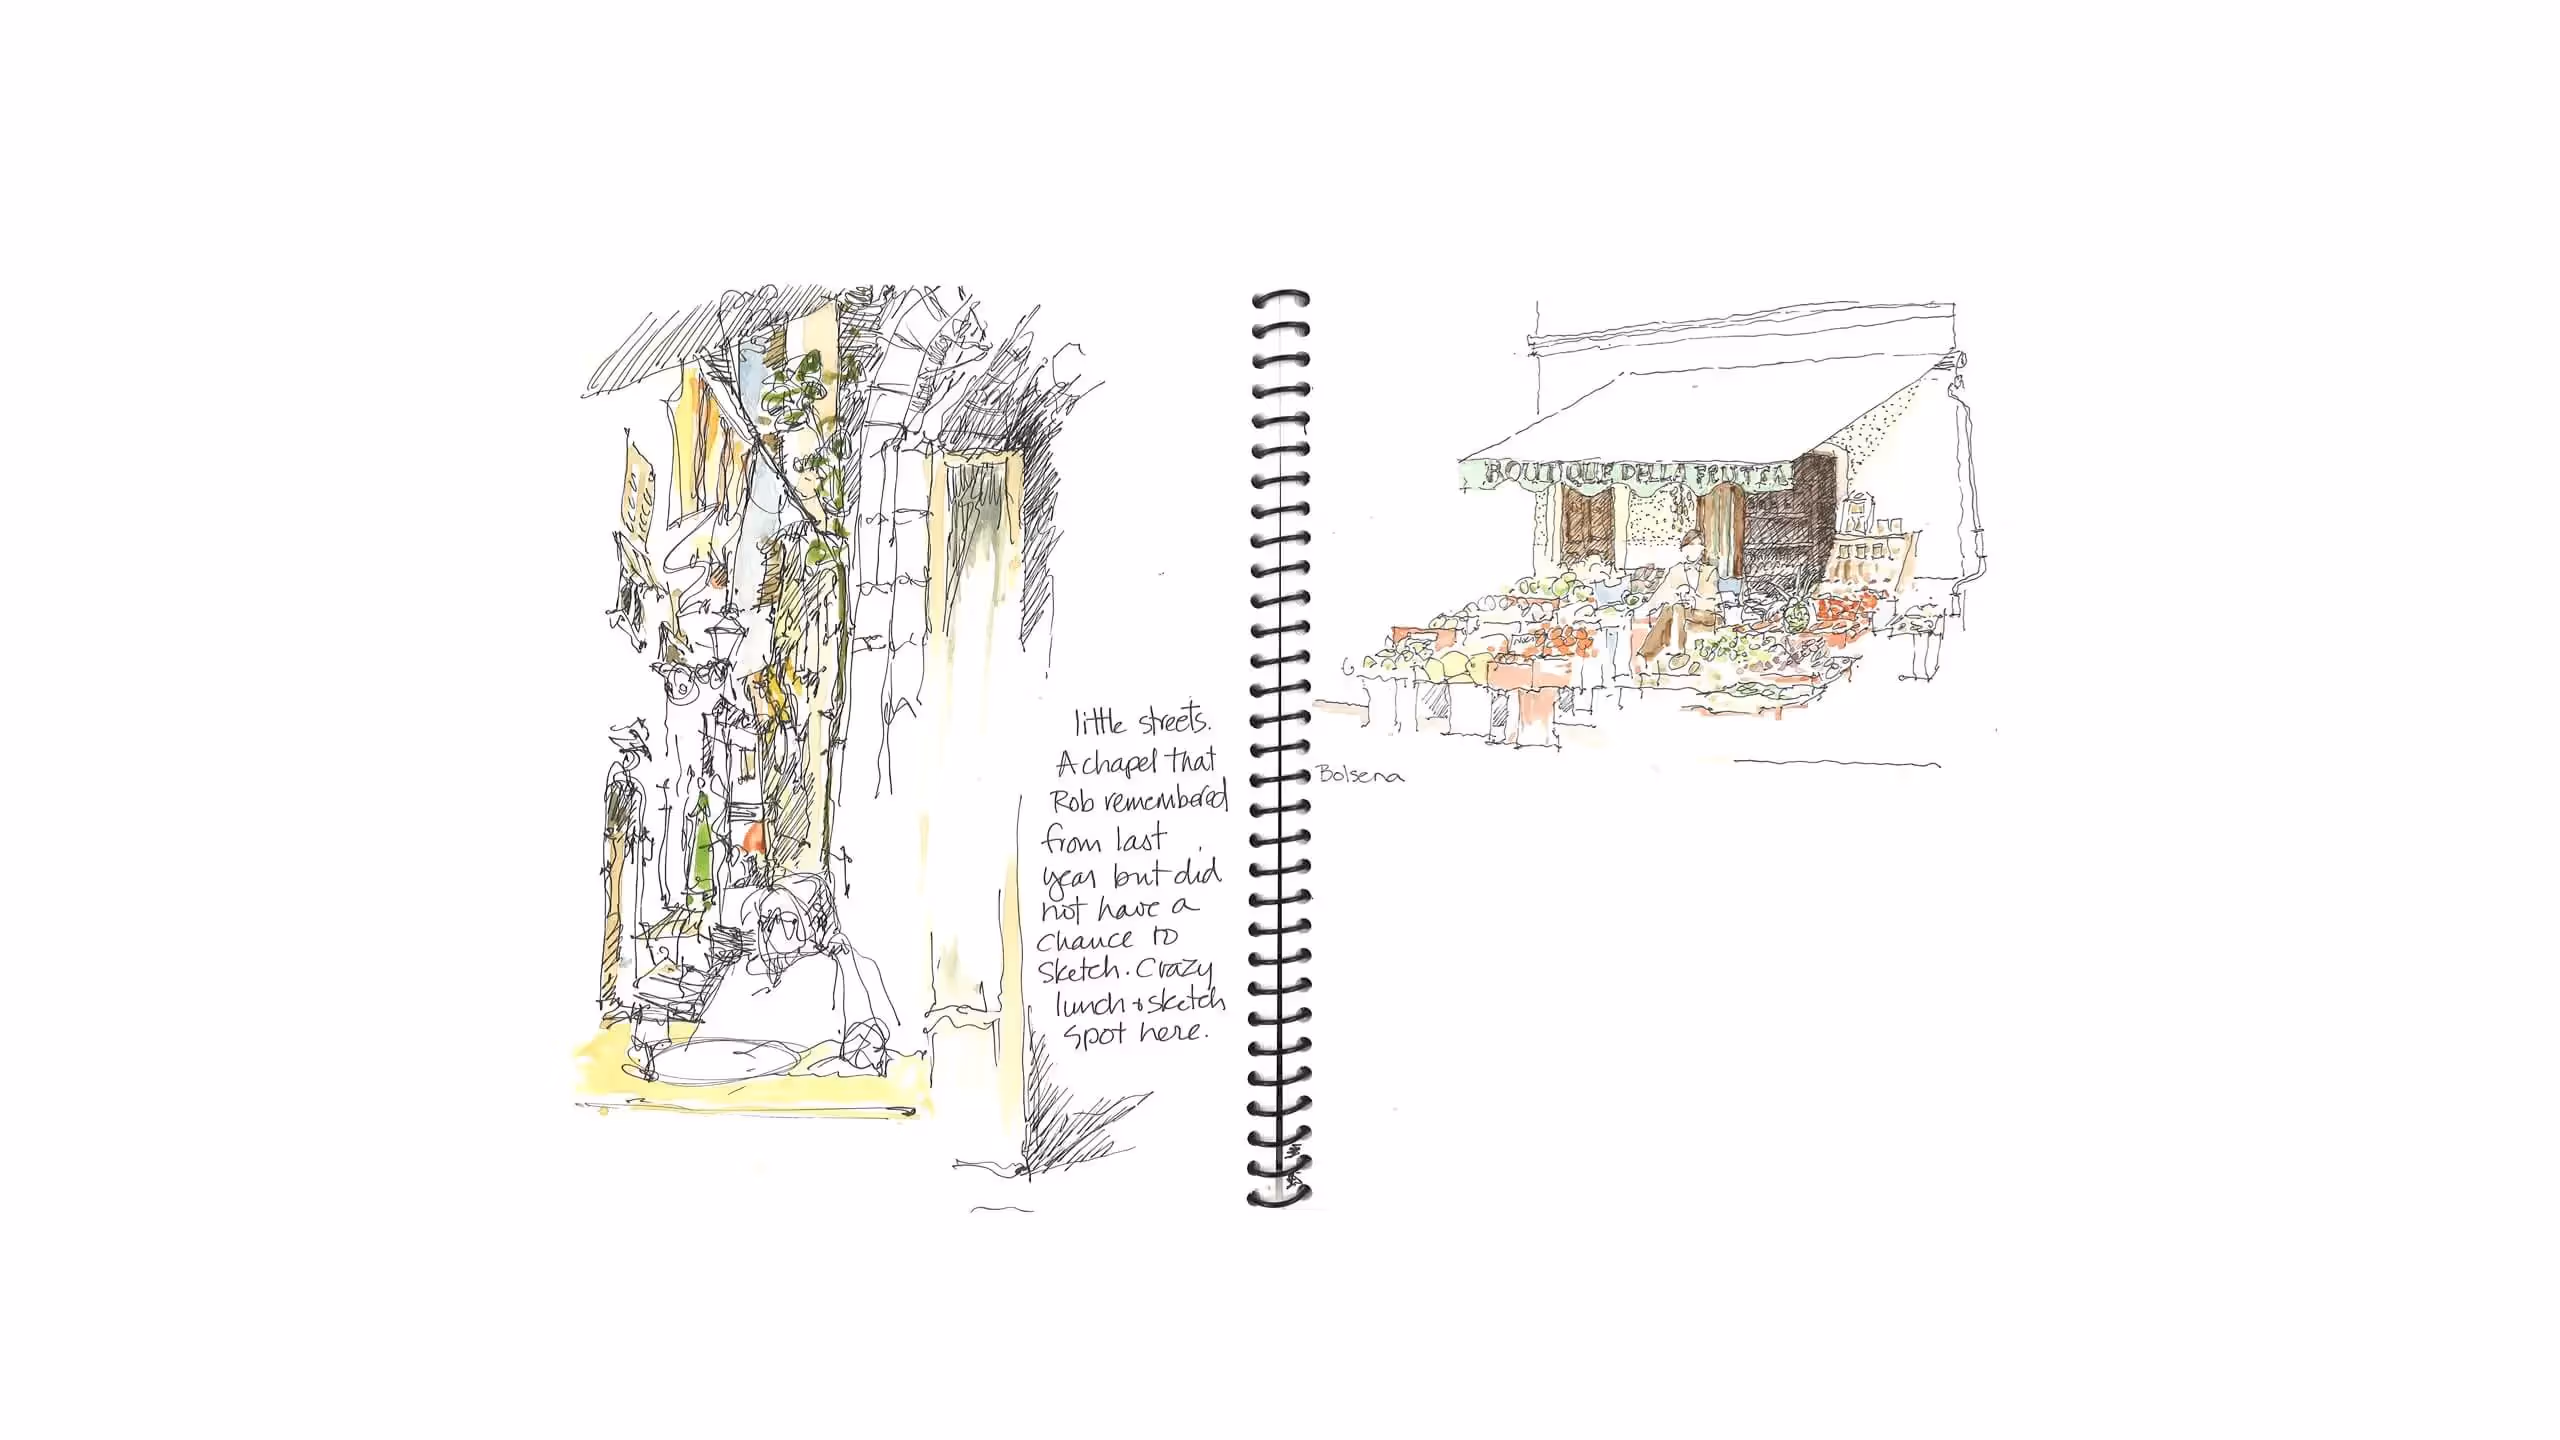 little streets.
A chapel that
Rob remembered
from last
year but did
not have a
chance to
sketch. Crazy
lunch & sketch
spot here.
BOUTIQUE DELLA FRUTTA
Bolsena